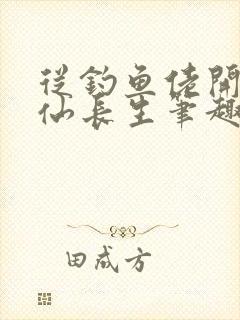 從釣魚佬開
仙長生筆趣
田成方